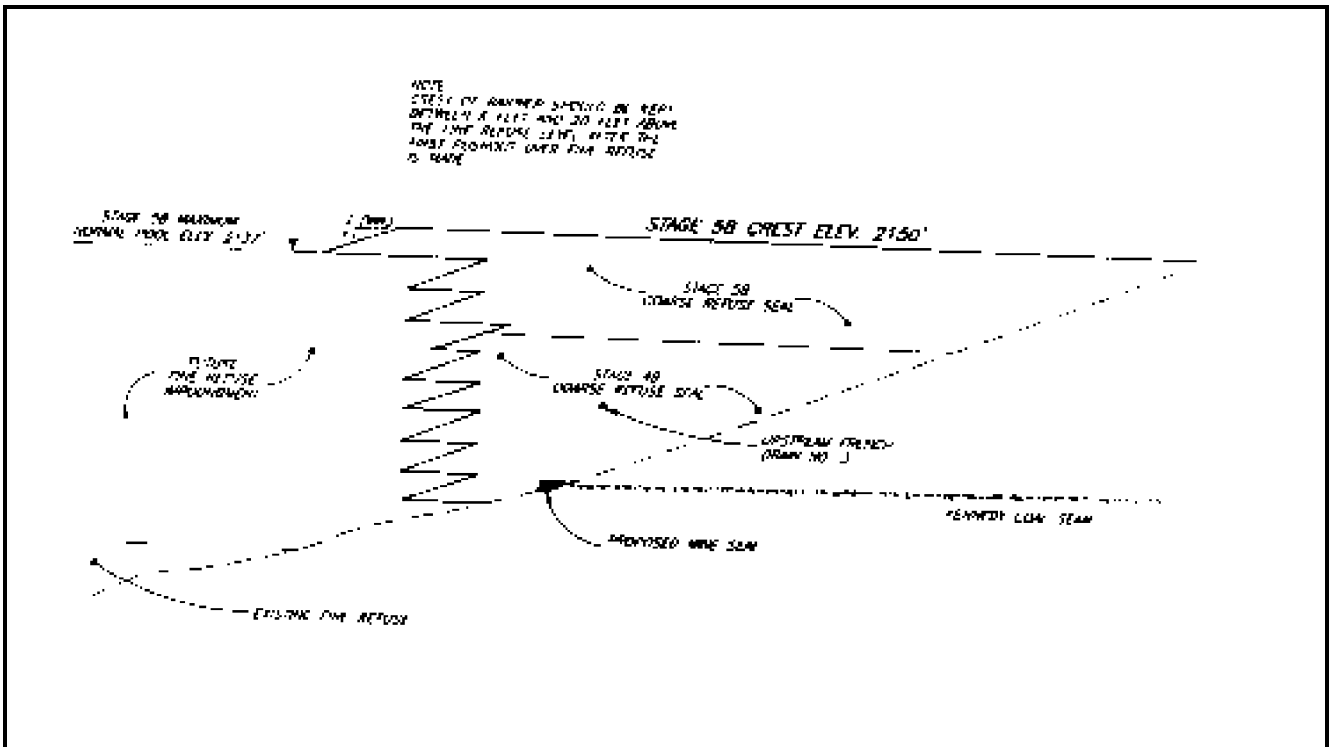 NOTE
CREST OF BARRIER SHOULD BE KEPT
BETWEEN FEET AND 20 FEET ABOVE
THE FINE REFUSE LEVEL AFTER THE
FIRST PUSHOUT OVER FINE REFUSE
IS MADE
STAGE 5B MAXIMUM
NORMAL POOL ELEV. 2137'
STAGE 5B CREST ELEV. 2150'
STAGE 5B
COARSE REFUSE SEAL
FUTURE
FINE REFUSE
IMPOUNDMENT
STAGE 4B
COARSE REFUSE SEAL
UPSTREAM FRENCH
DRAIN NO.
KENNEDY COAL SEAM
PROPOSED MINE SEAL
EXISTING FINE REFUSE